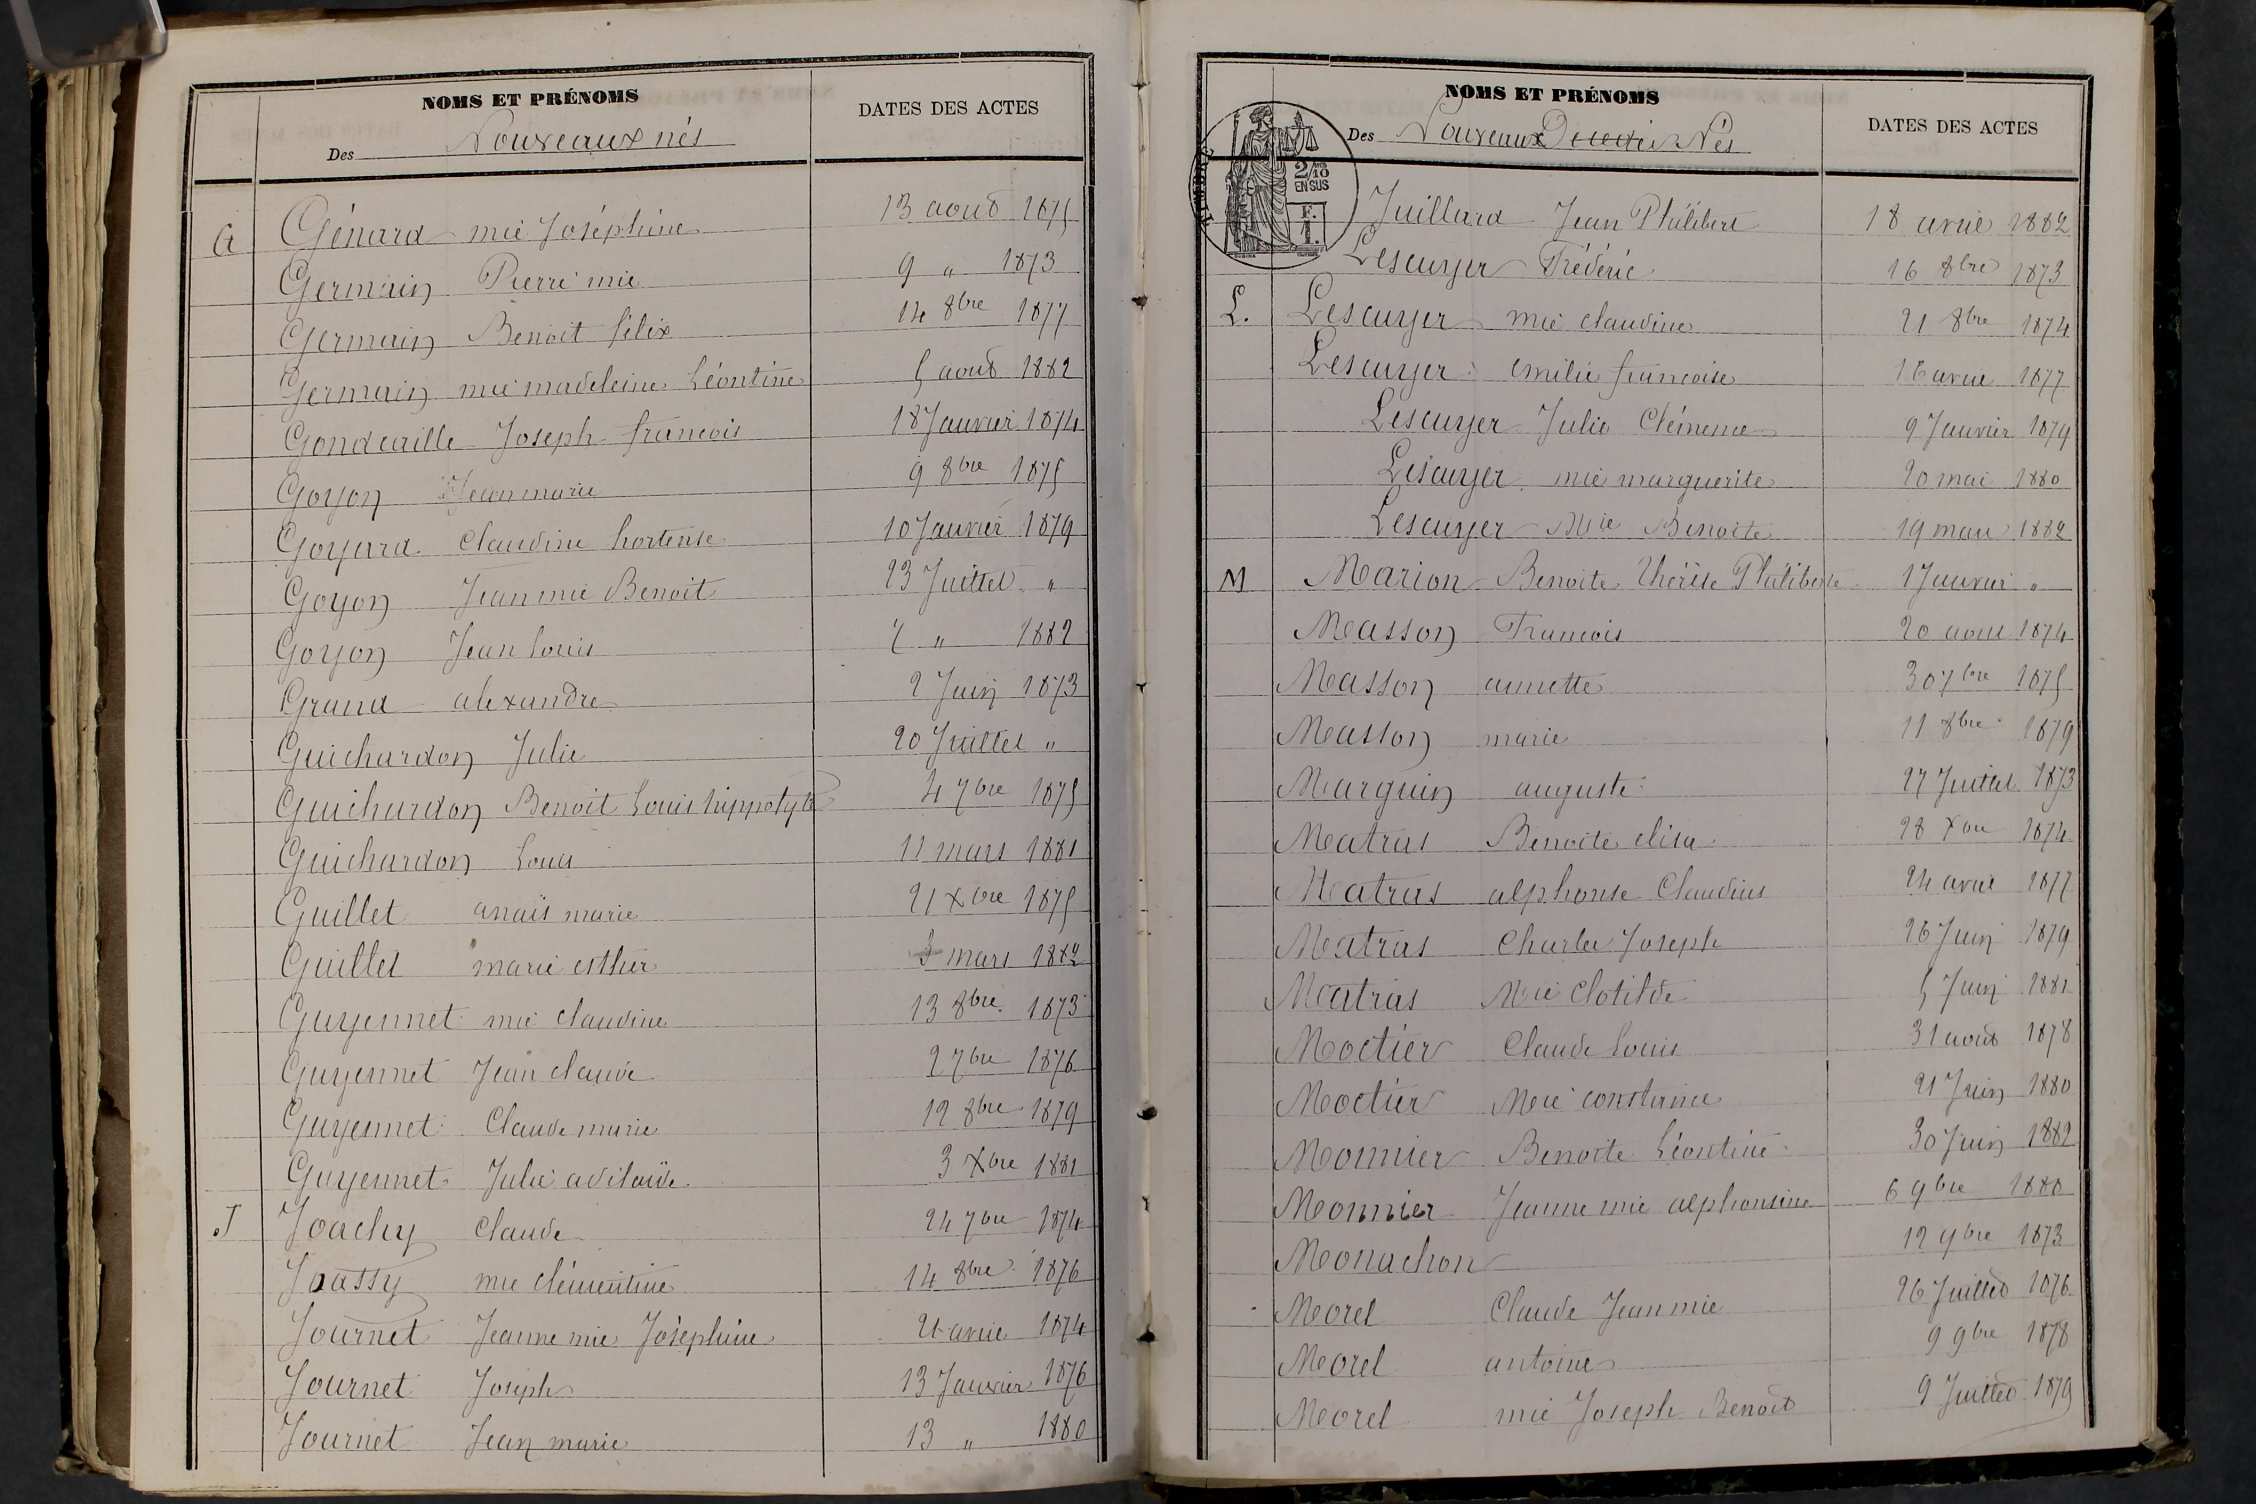 NOMS ET PRÉNOMS
DATES DES ACTES
Des Nouveaux nés
G Génard mie Joséphine 13 aout 1875
Germain Pierre mie 9 " 1873
Germain Benoit félix 14 8bre 1877
Germain mie madeleine Léontine 5 aout 1882
Gondcaille Joseph francois 18 Janvier 1874
Goyon Jean marie 9 8bre 1875
Goyard Claudine hortense 10 Janvier 1879
Goyon Jean mie Benoit 23 Juillet "
Goyon Jean Louis " 1882
Grand alexandre 2 Juin 1873
Guichardon Julie 20 Juillet "
Guichardon Benoit Louis hippolyte 4 7bre 1875
Guichardon Louis 11 mars 1881
Guillet anaïs marie 21 Xbre 1875
Guillet marie esther 5 mars 1882
Guyennet mie claudine 13 8bre 1873
Guyennet Jean claude 2 7bre 1876
Guyennet Claude marie 12 8bre 1879
Guyennet Julie adélaïde 3 Xbre 1881
J Joachy Claude 24 7bre 1874
Joassy mie clémentine 14 8bre 1876
Journet Jeanne mie Joséphine avril 1874
Journet Joseph 13 Janvier 1876
Journet Jean marie 13 " 1880
NOMS ET PRÉNOMS
DATES DES ACTES
Des Nouveaux Nés
TIMBRE
2/10
EN SUS
F.
1.
Juillard Jean Philibert 18 avril 1882
Lescuyer Frédéric 16 8bre 1873
L. Lescuyer mie claudine 21 8bre 1874
Lescuyer emilie francoise 16 avril 1877
Lescuyer Julie Clémence 9 Janvier 1879
Lescuyer mie marguerite 20 mai 1880
Lescuyer Mie Benoite 19 mars 1882
M Marion Benoite Thérèse Philiberte 1 Janvier "
Masson Francois 20 aout 1874
Masson annette 30 7bre 1875
Masson marie 11 8bre 1879
Marguin auguste 27 Juillet 1873
Matras Benoite elisa 28 Xbre 1874
Matras alphonse Claudius 24 avril 1877
Matras Charles Joseph 26 Juin 1879
Matras Mie Clotilde 5 Juin 1881
Moctier Claude Louis 31 aout 1878
Moctier Mie constance 21 Juin 1880
Monnier Benoite Léontine 30 Juin 1882
Monnier Jeanne mie alphonsine 6 9bre 1880
Monachon 12 9bre 1873
Morel Claude Jean mie 26 Juillet 1876
Morel antoine 9 9bre 1878
Morel mie Joseph Benoit 9 Juillet 1879